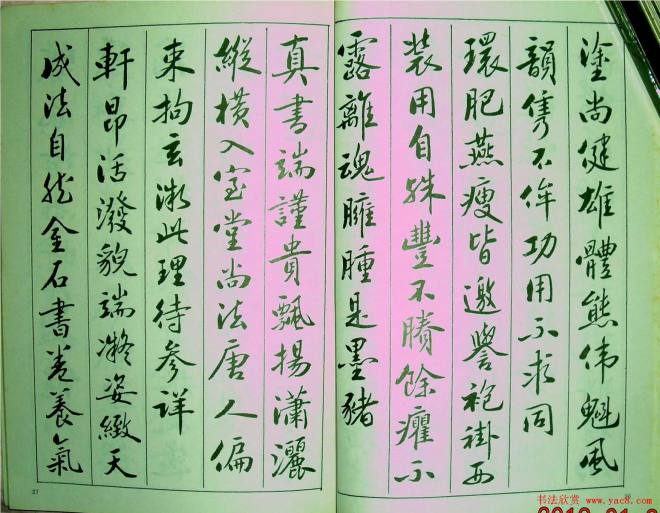 塗尚健雄體態偉魁風
韻雋不侔功用不求同
環肥燕瘦皆邀譽袍褂西
裝用自殊豐不賸餘癯不
露離魂臃腫是墨豬
真書端謹貴飄揚瀟灑
縱橫入室堂尚法唐人偏
束拘玄漱此理待參詳
軒昂活潑貌端凝姿緻天
成法自然金石書卷養氣
37
书法欣赏 www.yac8.com